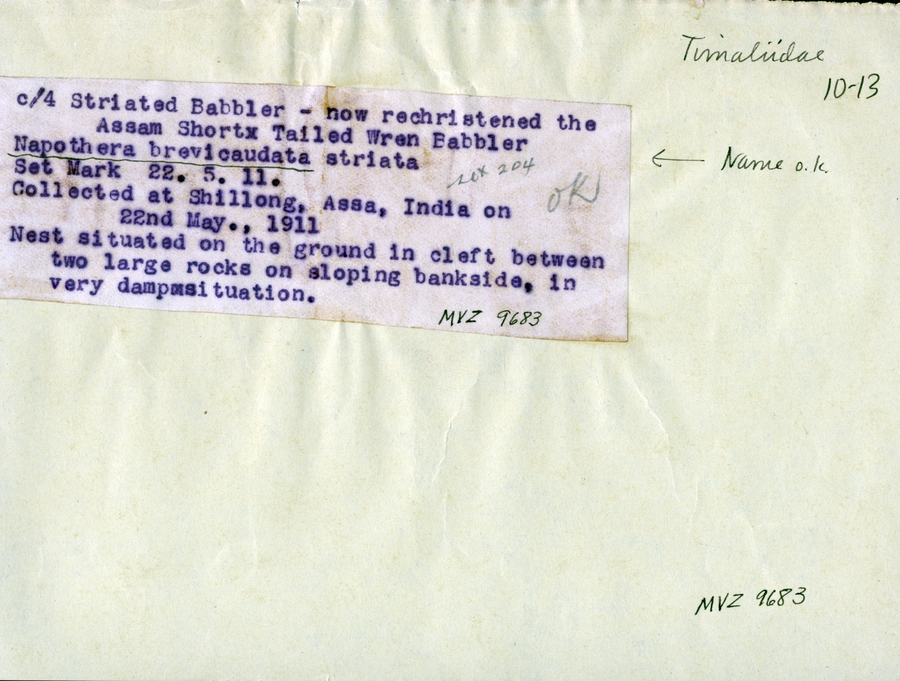 Timaliidae
10-13
c/4 Striated Babbler - now rechristened the
Assam Shortx Tailed Wren Babbler
Napothera brevicaudata striata
← Name o.k.
Set Mark 22. 5. 11.
set 204
OK
Collected at Shillong, Assa, India on
22nd May., 1911
Nest situated on the ground in cleft between
two large rocks on sloping bankside, in
very dampmsituation.
MVZ 9683
MVZ 9683